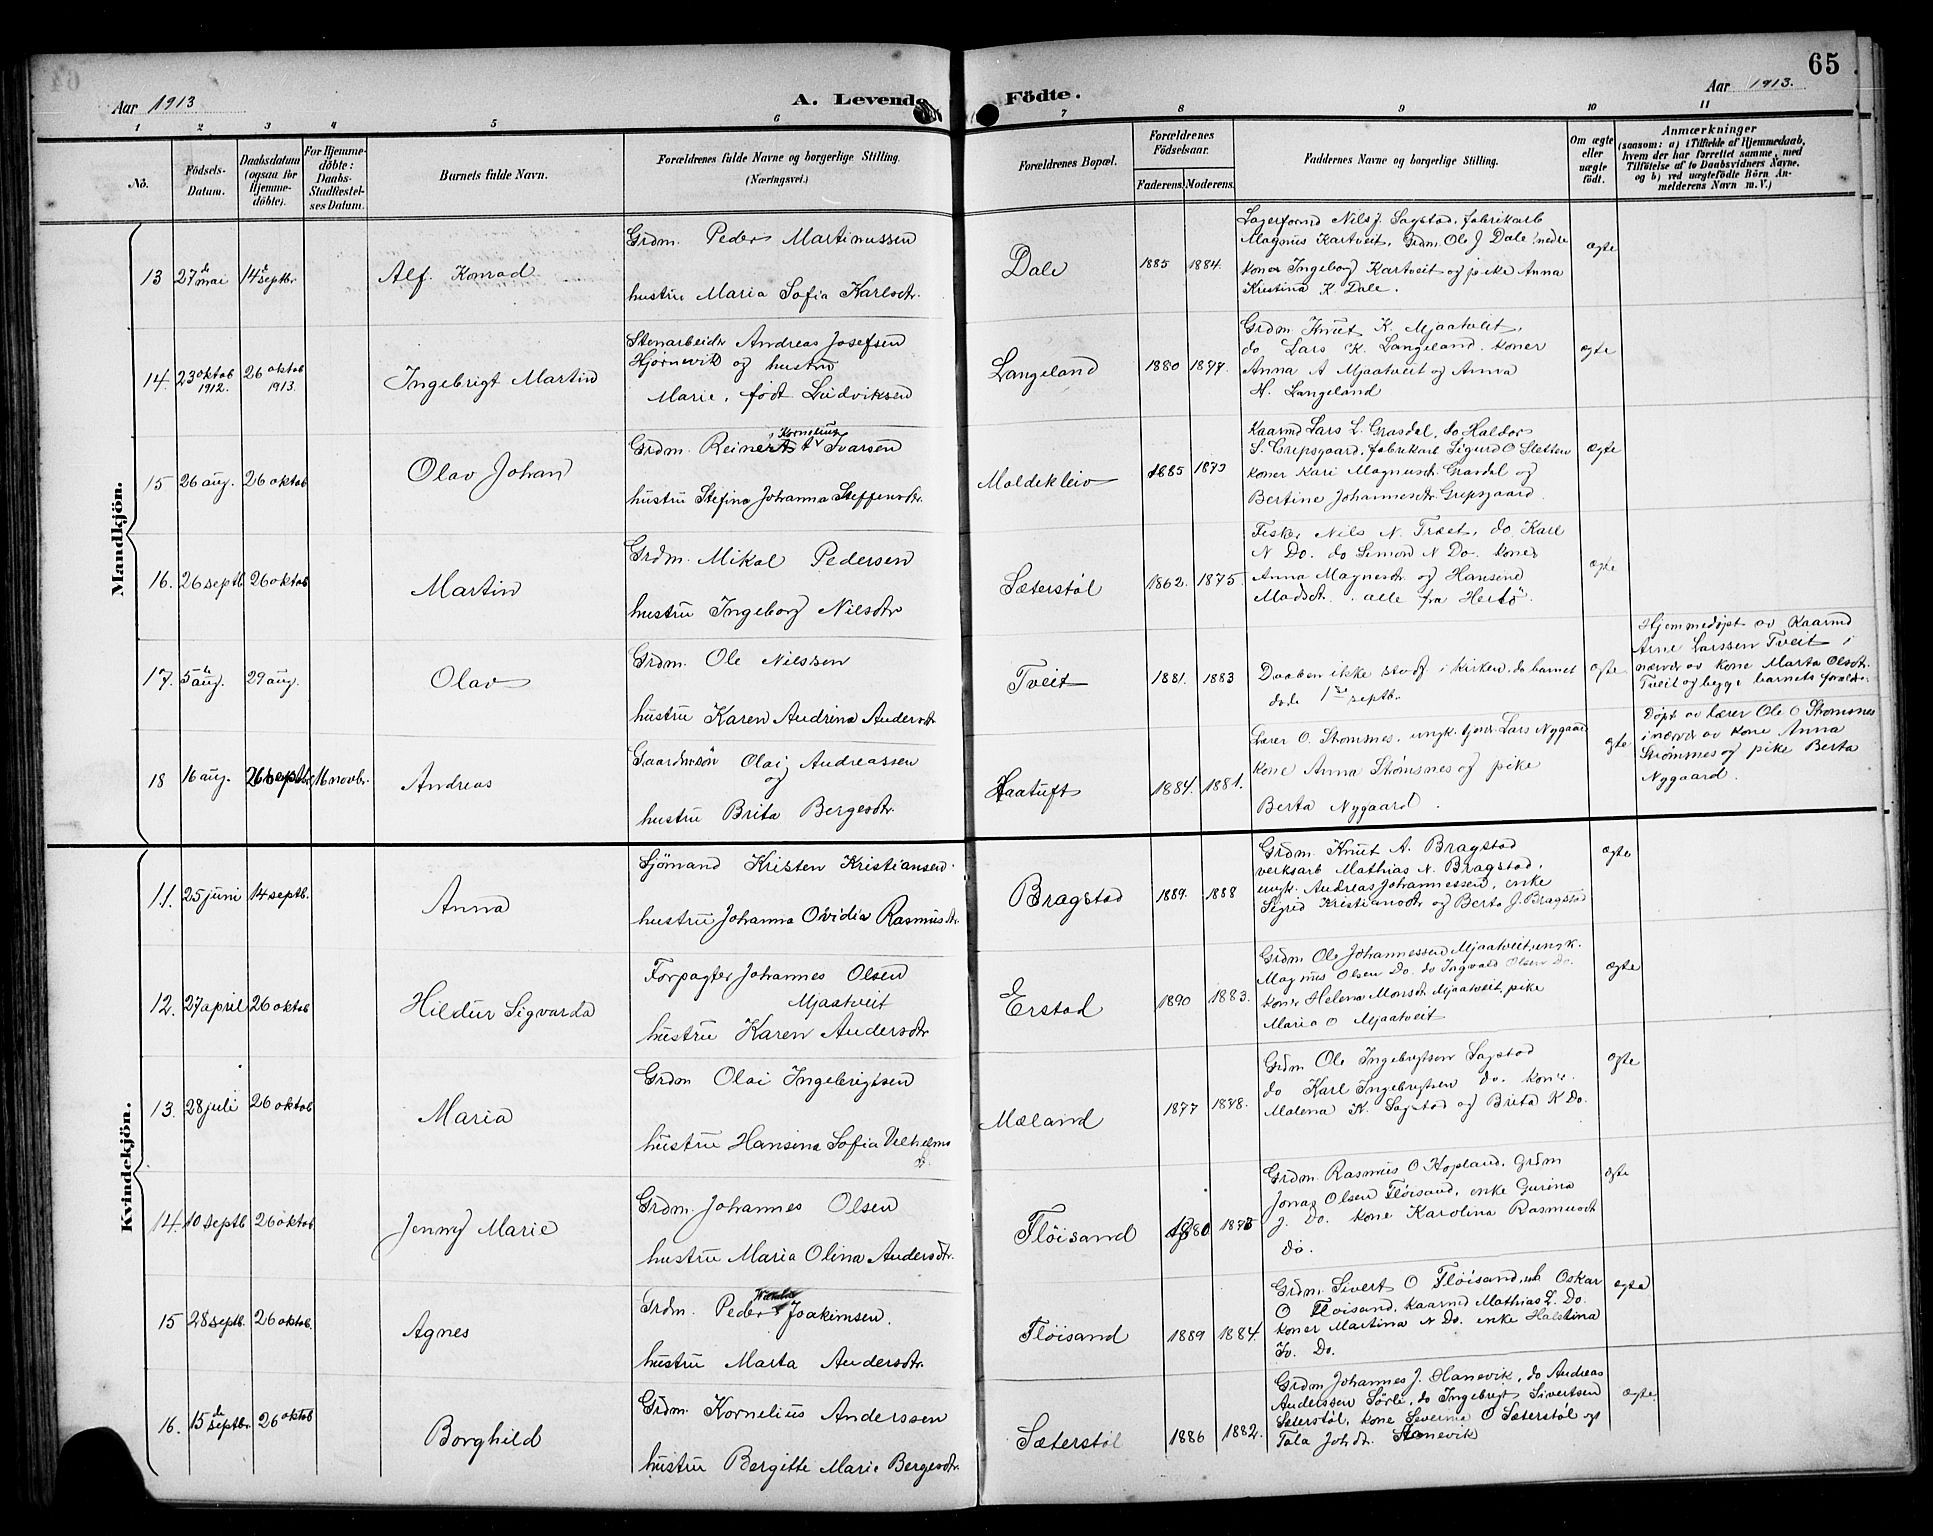 65
Aar 1913
A. Levende
Födte.
Aar 1913.
1 2 3 4 5 6 7 8 9 10 11
No.
Födsels-
Datum.
Daabsdatum
(ogsaa for
Hjemme-
döbte).
For Hjemme-
döbte:
Daabs-
Stadfæstel-
ses Datum.
Barnets fulde Navn.
Forældrenes fulde Navne og borgerlige Stilling.
(Næringsvei.)
Forældrenes Bopæl.
Forældrenes
Födselsaar.
Faderens. Moderens.
Faddernes Navne og borgerlige Stilling.
Om ægte
eller
uægte
födt.
Anmærkninger
(saasom: a) i Tilfælde af Hjemmedaab,
hvem der har forrettet samme, med
Tilföielse af to Daabsvidners Navne,
og b) ved uægtefödte Börn An-
melderens Navn m. V.)
Mandkjön.
13 27de mai 14de septbr
Alf. Konrad
Grdm. Peder Martinussen
hustru Maria Sofia Karlsdtr.
Dale
1885 1884.
Lagerformd Nils J. Sagstad, fabrikarb
Magnus Kartveit, Grdm. Ole J Dale nedre
koner Ingeborg Kartveit og pike Anna
Kristina K Dale.
ægte
14. 23 oktob 1912. 26 oktob 1913.
Ingebrigt Martin
Stenarbeider Andreas Josefsen
Hjørnevik og hustru
Marie, født Ludviksen
Langeland
1880 1877.
Grdm Knut K. Mjaatveit,
do Lars K. Langeland. koner
Anna A Mjaatveit og Anna
H. Langeland
ægte
15 26 aug. 26 oktob
Olav Johan
Kornelius
Grdm. Reinert Ivarsen
hustru Stefina Johanna Steffensdtr.
Moldekleiv
1885 1873
Kaarmd Lars L. Grasdal, do Haldor
S. Grepsgaard, fabrikarb Sigurd O Sletten
koner Kari Magnusdtr. Grasdal og
Bertine Johannesdtr. Grepsgaard.
ægte
16. 26 septb. 26 oktob
Martin
Grdm. Mikal Pedersen
hustru Ingeborg Nilsdtr
Sæterstøl
1862. 1875.
Fisker Nils N. Træet, do Karl
N Do. do Simon N Do. koner
Anna Magnesdtr. og Hansine
Madsdtr. alle fra Hertø.
ægte
17. 5de aug. 29 aug.
Olav
Grdm. Ole Nilssen
hustru Karen Andrina Andersdtr
Tveit
1881. 1883
Daaben ikke stadf i kirken, da barnet
døde 1ste septb.
ægte
Hjemmedøpt av Kaarmd
Arne Larssen Tveit i
nærvær av kone Marta Olsdtr.
Tveit og begge barnets forældre.
18 16 aug. 26 septb. 16 novbr.
Andreas
Gaardmsøn Olai Andreassen
og
hustru Brita Bergesdtr.
Haatuft
1884. 1881.
Lærer O. Strømsnes, ungk. tjener Lars Nygaard
kone Anna Strømsnes og pike
Berta Nygaard.
ægte
Døpt av lærer Ole O Strømsnes
i nærvær av kone Anna
Strømmes og pike Berta
Nygaard.
Kvindekjön.
11. 25 juni 14 septb.
Anna
Sjömand Kristen Kristiansen.
hustru Johanna Ovidia Rasmusdtr.
Bragstad
1889. 1888
Grdm. Knut A. Bragstad
verksarb Mathias N. Bragstad,
ungk. Andreas Johannessen, enke
Sigrid Kristiansdtr og Berta J. Bragstad
ægte
12. 27 april 26 oktob
Hildur Sigvarda
Forpagter Johannes Olsen
Mjaatveit
hustru Karen Andersdtr
Erstad
1890 1883.
Grdm Ole Johannessen Mjaatveit, ungk.
Magnus Olsen Do. do Ingvald Olsen Do.
koner Helena Monsdtr Mjaatveit, pike
Maria O Mjaatveit
ægte
13. 28 juli 26 oktob
Maria
Grdm Olai Ingebrigtsen
hustru Hansina Sofia Vilhelms
dtr.
Mæland
1877 1878.
Grdm Ole Ingebrigtsen Sagstad
do Karl Ingebrigtsen do. koner
Malena K. Sagstad og Brita K Do.
ægte
14. 10 septb 26 oktob
Jenny Marie
Grdm. Johannes Olsen
hustru Maria Olina Andersdtr.
Fløisand
1880 1875
Grdm. Rasmus O Hopland, Grdm
Jonas Olsen Fløisand, enke Gurina
J. Do. kone Karolina Rasmusdtr
Do.
ægte
15 28 septb. 26 oktob.
Agnes
Grdm. Peder Joakimsen.
hustru Marta Andersdtr.
Fløisand
1889 1884.
Grdm. Sivert O Fløisand, uk Oskar
O Fløisand, kaarmd Mathias L. Do.
koner Martina N Do. enke Halstina
Jo. Do.
ægte
16. 15de septbr 26 oktob
Borghild
Grdm. Kornelius Anderssen
hustru Bergitte Marie Bergesdtr.
Sæterstøl
1886 1882.
Grdm Johannes J. Hanevik, do Andreas
Anderssen Sørli, do Ingebrigt Sivertsen
Sæterstøl, kone Severine O Sæterstøl og
Tala Johdtr. Hanevik
ægte.